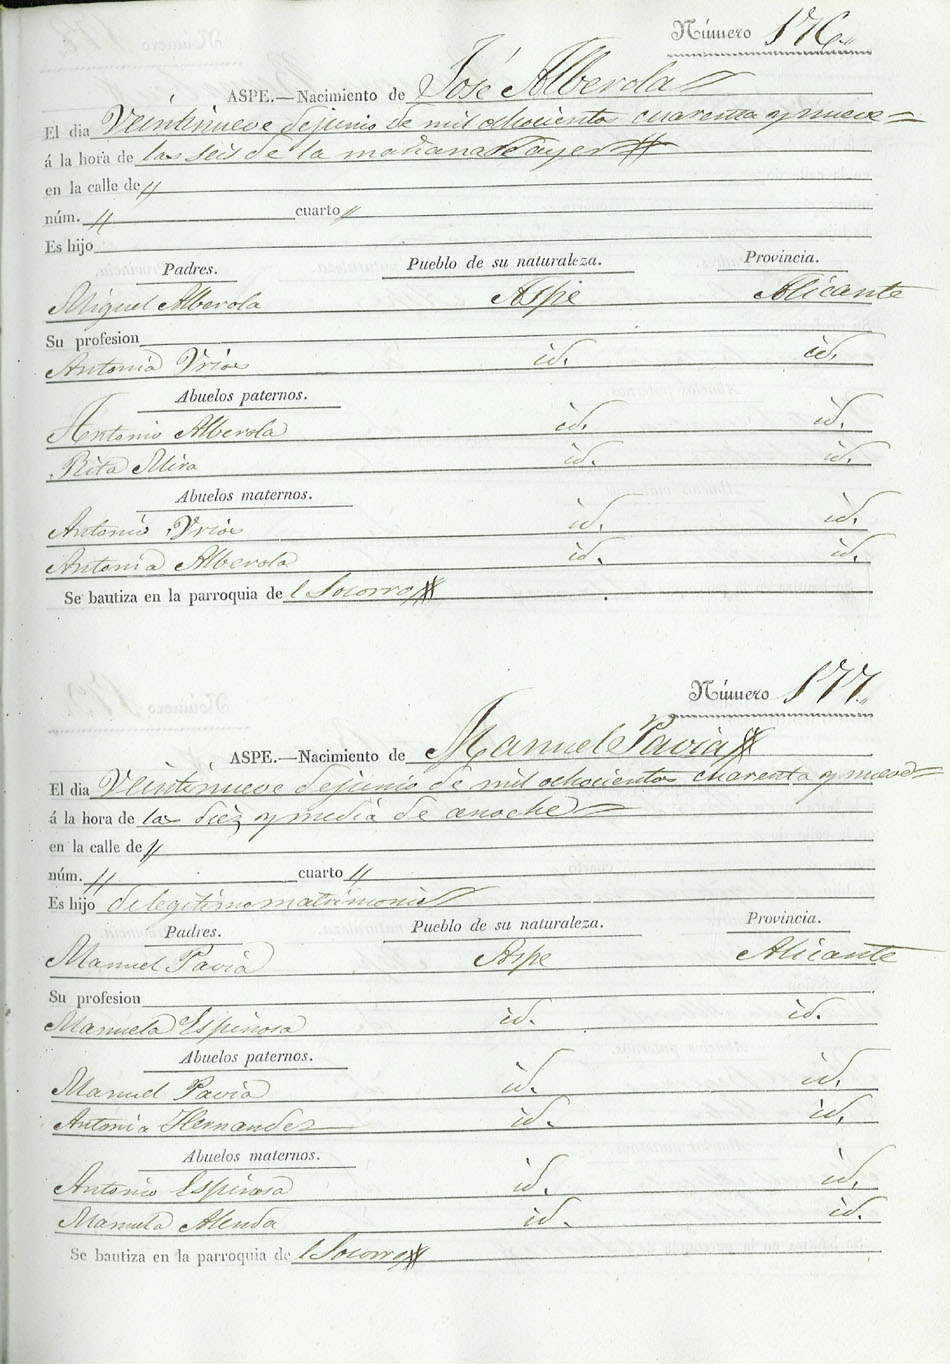 Número 176
ASPE.—Nacimiento de José Alberola
El dia Veintinueve de junio de mil ochocientos cuarenta y nueve
á la hora de las seis de la mañana de ayer
en la calle de "
núm. " cuarto "
Es hijo
Padres. Pueblo de su naturaleza. Provincia.
Miguel Alberola Aspe Alicante
Su profesion
Antonia Vrios id. id.
Abuelos paternos.
Antonio Alberola id. id.
Rita Mira id. id.
Abuelos maternos.
Antonio Vrios id. id.
Antonia Alberola id. id.
Se bautiza en la parroquia de l Socorro
Número 177
ASPE.—Nacimiento de Manuel Pavia
El dia Veintinueve de junio de mil ochocientos cuarenta y nueve
á la hora de las diez y media de anoche
en la calle de "
núm. " cuarto "
Es hijo de legitimo matrimonio
Padres. Pueblo de su naturaleza. Provincia.
Manuel Pavia Aspe Alicante
Su profesion
Manuela Espinosa id. id.
Abuelos paternos.
Manuel Pavia id. id.
Antonia Hernandez id. id.
Abuelos maternos.
Antonio Espinosa id. id.
Manuela Alenda id. id.
Se bautiza en la parroquia de l Socorro